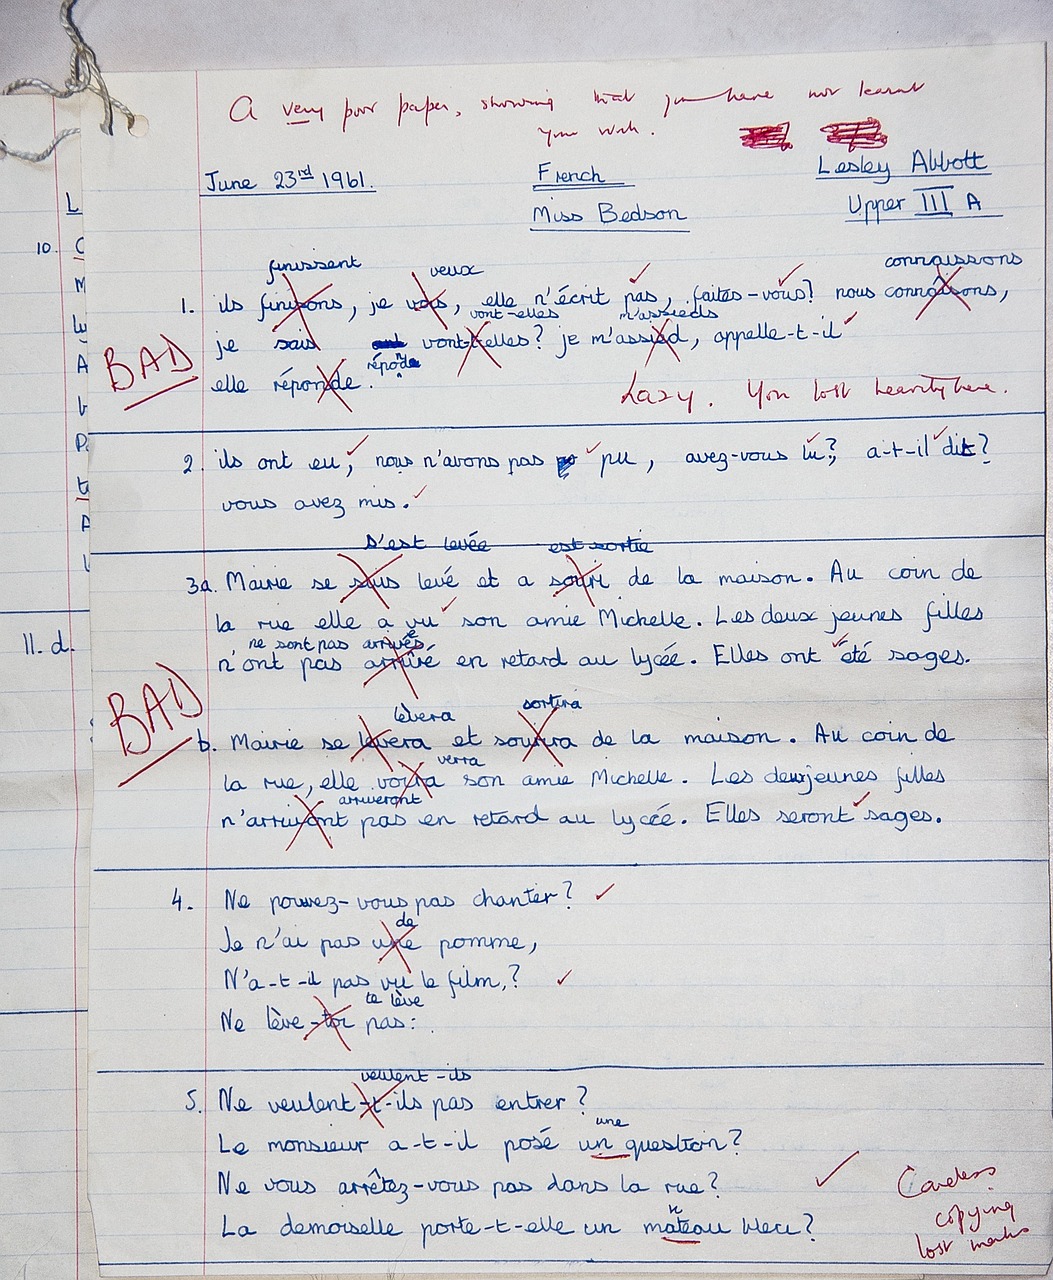 A very poor paper, showing that you have not learnt
your work.
June 23rd 1961.
French
Lesley Abbott
Miss Bedson
Upper III A
L
10.
C
M
A
P
t
A
11. d.
finissent veux connaissons
1. ils finissons, je vois, elle n'écrit pas, faites-vous? nous connaisons,
vont-elles m'assieds
je sais vont-t-elles? je m'assied, appelle-t-il
BAD
répond
elle réponde.
Lazy. You lost heavily here.
2. ils ont eu, nous n'avons pas pu, avez-vous lu?, a-t-il dit?
vous avez mis.
s'est levée est sortie
3a. Mairie se suis levé et a souri de la maison. Au coin de
la rue elle a vu son amie Michelle. Les deux jeunes filles
ne sont pas arrivées
n'ont pas arrivé en retard au lycée. Elles ont été sages.
BAD
lèvera sortira
b. Mairie se levera et sourira de la maison. Au coin de
verra
la rue, elle voira son amie Michelle. Les deux jeunes filles
arriveront
n'arrivont pas en retard au lycée. Elles seront sages.
4. Ne pouvez-vous pas chanter?
de
Je n'ai pas une pomme,
N'a-t-il pas vu le film,?
te lève
Ne lève-toi pas:.
veulent-ils
5. Ne veulent-t-ils pas entrer?
une
Le monsieur a-t-il posé un question?
Ne vous arrêtez-vous pas dans la rue?
n
La demoiselle porte-t-elle un mateau bleu?
Careless
copying
lost marks